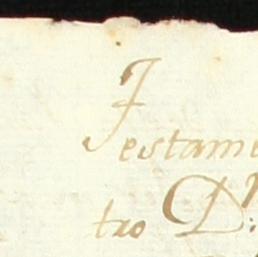 Testame
tro D.